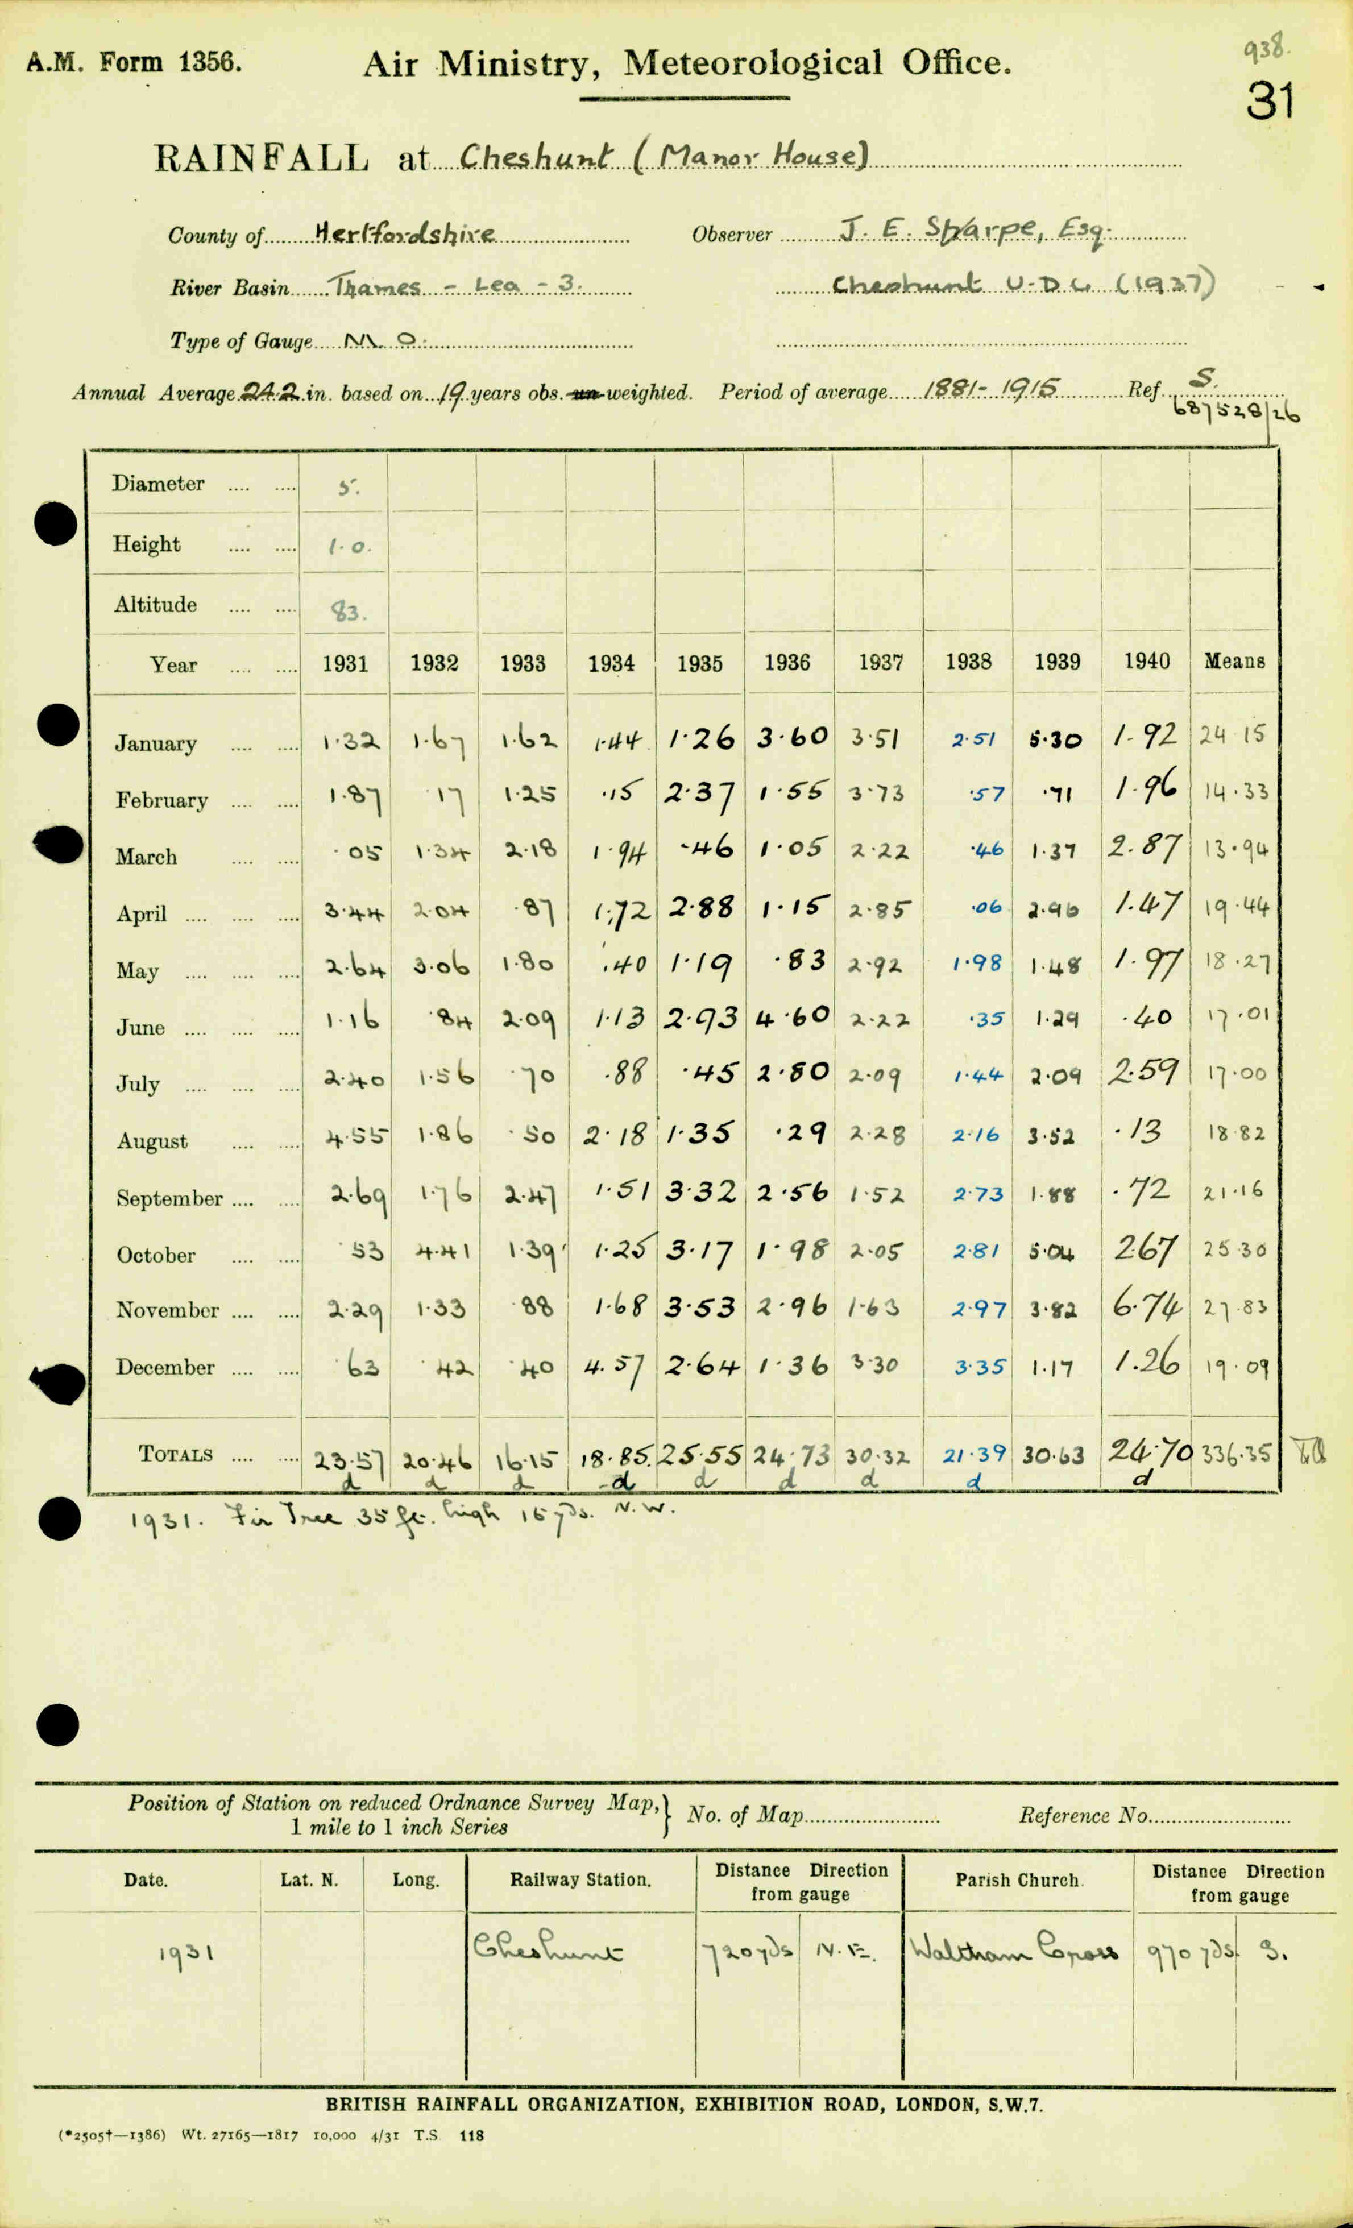 938.
A.M. Form 1356. Air Ministry, Meteorological Office.
31
RAINFALL at Cheshunt (Manor House)
County of Hertfordshire Observer J. E. Sharpe, Esq.
River Basin Thames - Lea - 3. Cheshunt U.D.C. (1937)
Type of Gauge M.O.
Annual Average 24.2 in. based on 19 years obs. un-weighted. Period of average 1881-1915 Ref. S.
687528/26
Diameter .... .... 5.
Height .... .... 1.0.
Altitude .... .... 83.
Year .... .... 1931 1932 1933 1934 1935 1936 1937 1938 1939 1940 Means
January .... .... 1.32 1.67 1.62 1.44 1.26 3.60 3.51 2.51 5.30 1.92 24.15
February .... .... 1.87 .17 1.25 .15 2.37 1.55 3.73 .57 .71 1.96 14.33
March .... .... .05 1.34 2.18 1.94 .46 1.05 2.22 .46 1.37 2.87 13.94
April .... .... .... 3.44 2.04 .87 1.72 2.88 1.15 2.85 .06 2.96 1.47 19.44
May .... .... .... 2.64 3.06 1.80 .40 1.19 .83 2.92 1.98 1.48 1.97 18.27
June .... .... .... 1.16 .84 2.09 1.13 2.93 4.60 2.22 .35 1.29 .40 17.01
July .... .... .... 2.40 1.56 .70 .88 .45 2.80 2.09 1.44 2.09 2.59 17.00
August .... .... 4.55 1.86 .50 2.18 1.35 .29 2.28 2.16 3.52 .13 18.82
September .... .... 2.69 1.76 2.47 1.51 3.32 2.56 1.52 2.73 1.88 .72 21.16
October .... .... .53 4.41 1.39 1.25 3.17 1.98 2.05 2.81 5.04 2.67 25.30
November .... .... 2.29 1.33 .88 1.68 3.53 2.96 1.63 2.97 3.82 6.74 27.83
December .... .... .63 .42 .40 4.57 2.64 1.36 3.30 3.35 1.17 1.26 19.09
TOTALS .... .... 23.57 20.46 16.15 18.85. 25.55 24.73 30.32 21.39 30.63 24.70 336.35
d d d d d d d d d
1931. Fir Tree 35 ft. high 15 yds. N.W.
Position of Station on reduced Ordnance Survey Map,} No. of Map Reference No.
1 mile to 1 inch Series
Date. Lat. N. Long. Railway Station. Distance Direction from gauge Parish Church. Distance Direction from gauge
1931 Cheshunt 720 yds N.E. Waltham Cross 970 yds S.
BRITISH RAINFALL ORGANIZATION, EXHIBITION ROAD, LONDON, S.W.7.
(*2505†—1386) Wt. 27165—1817 10,000 4/31 T.S. 118